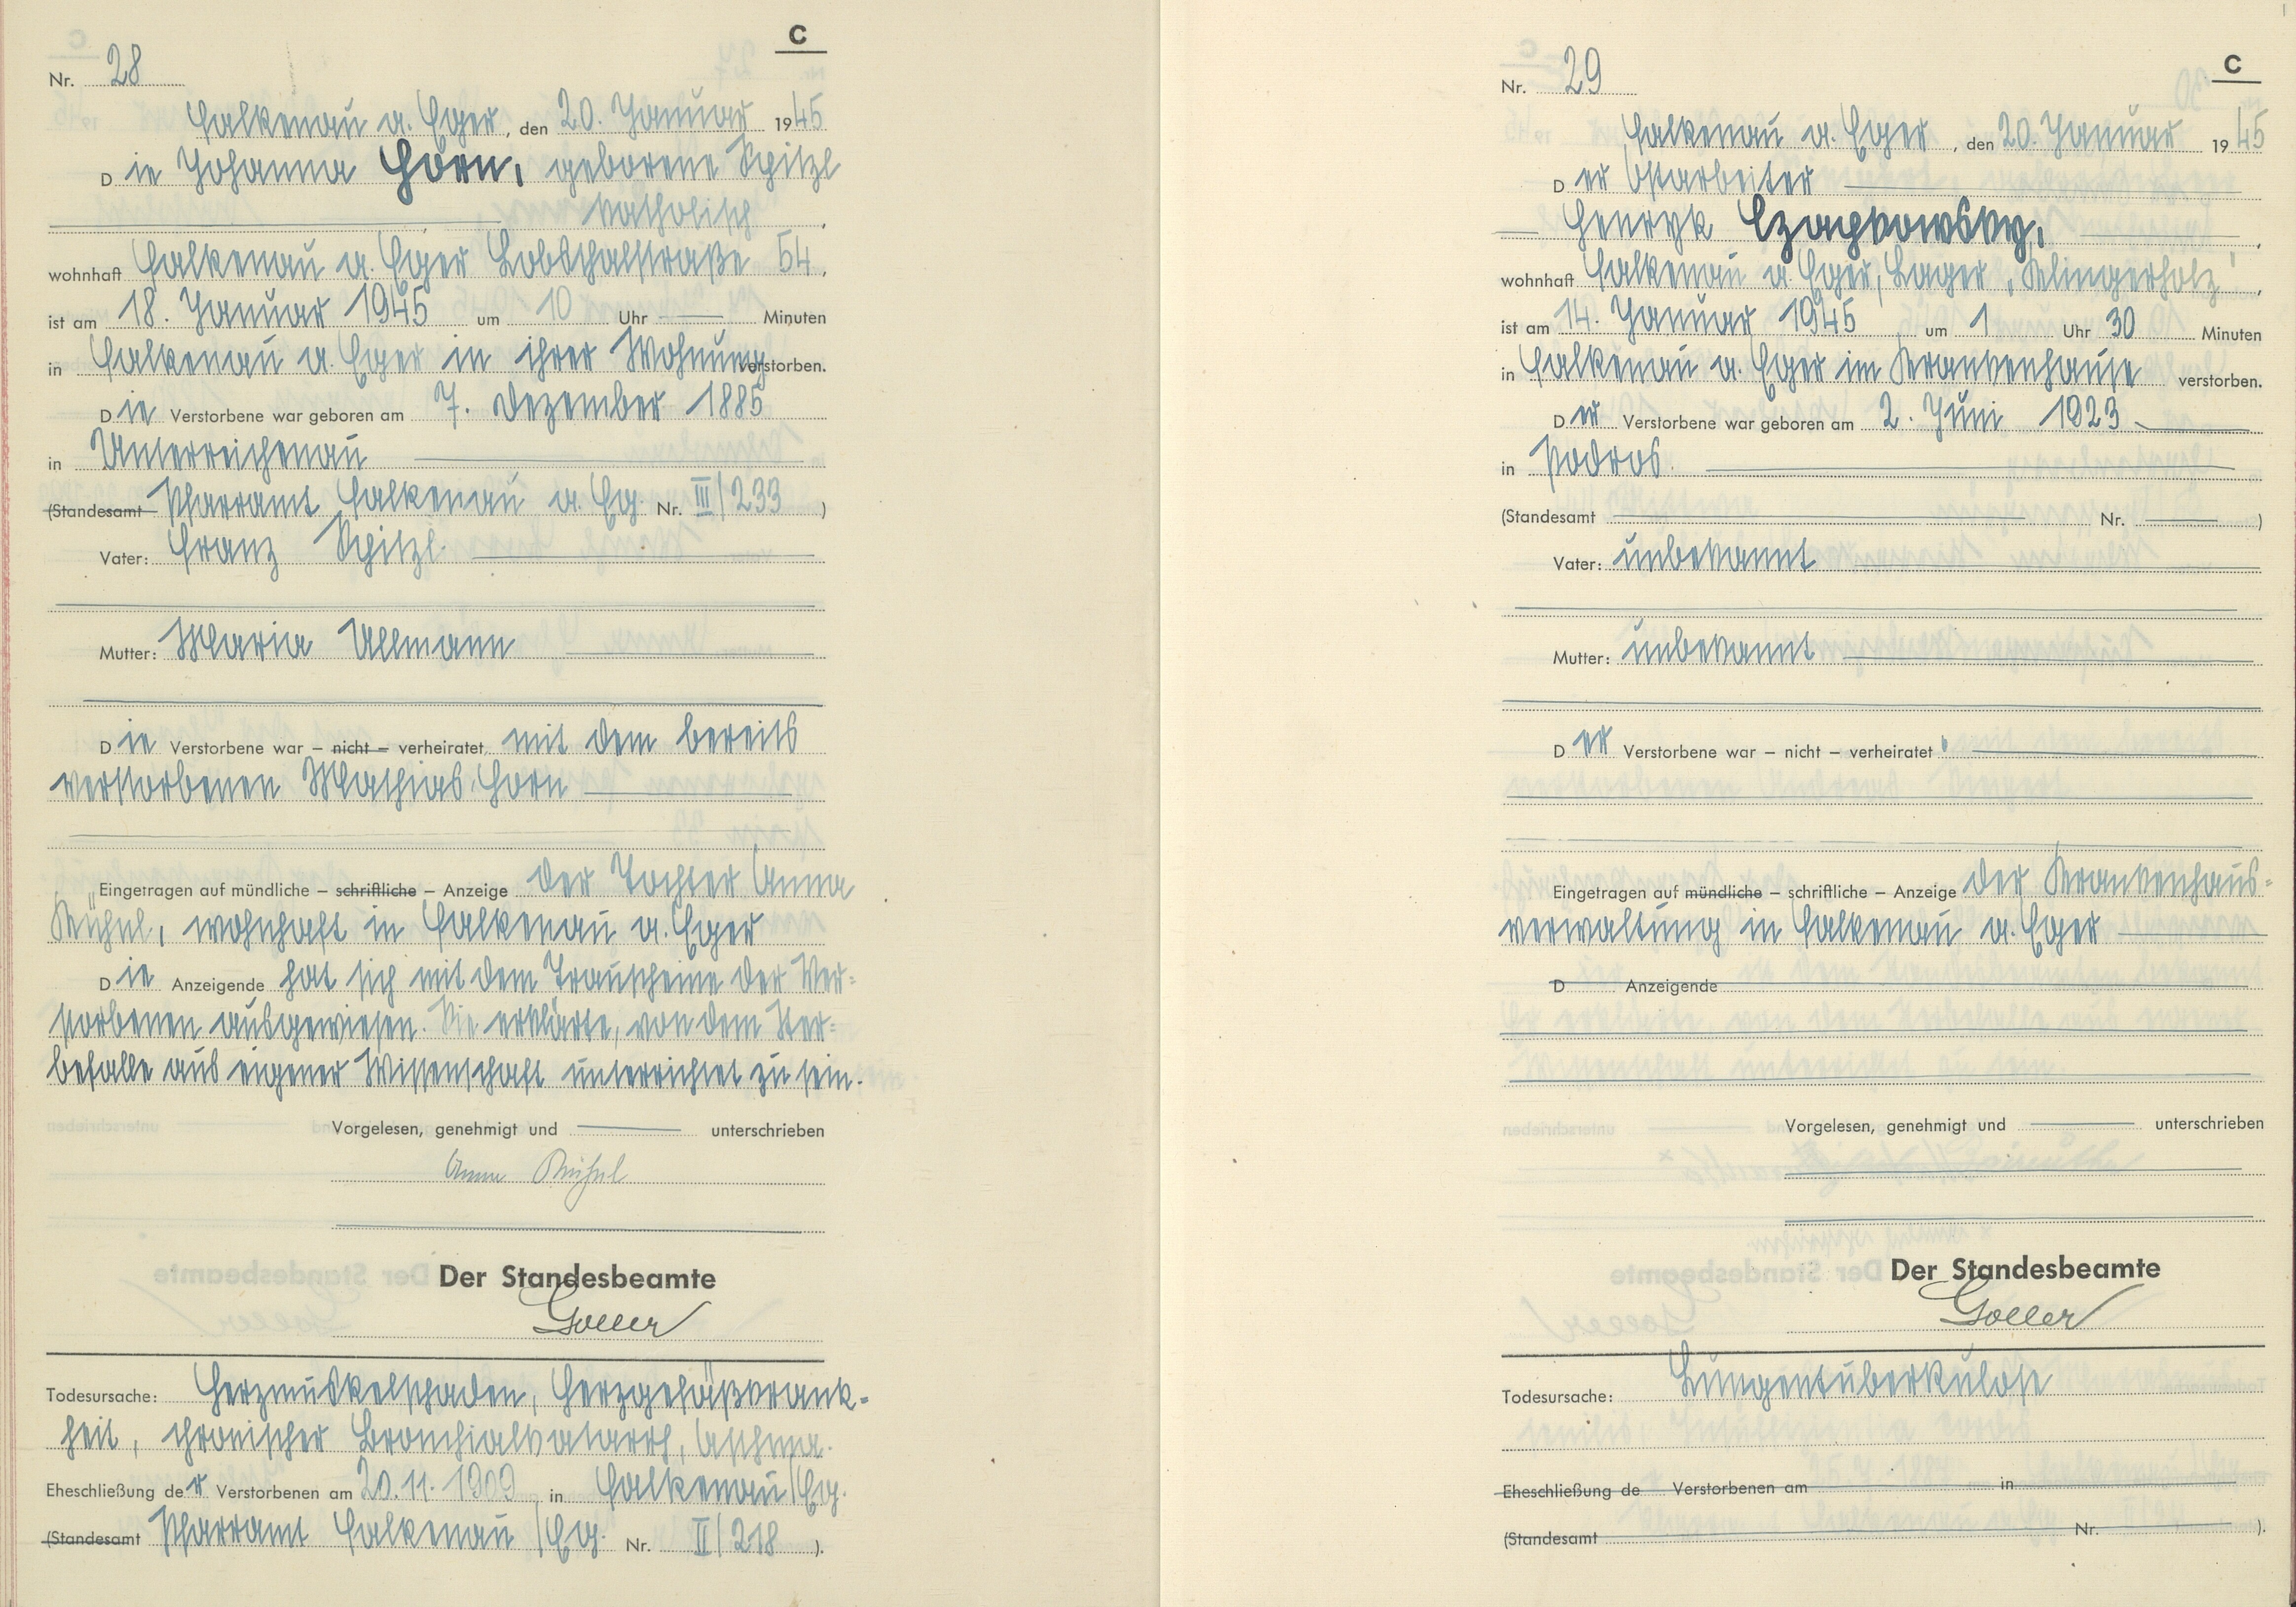 C
Nr. 28
Falkenau a. Eger, den 20. Januar 1945
Die Johanna Horn, geborene Spitzl
katholisch,
wohnhaft Falkenau a. Eger Lobsthalstraße 54,
ist am 18. Januar 1945 um 10 Uhr — Minuten
in Falkenau a. Eger in ihrer Wohnung verstorben.
Die Verstorbene war geboren am 7. Dezember 1885
in Unterreichenau
(Standesamt Pfarramt Falkenau a. Eg. Nr. III/233)
Vater: Franz Spitzl
Mutter: Maria Ullmann
Die Verstorbene war – nicht – verheiratet mit dem bereits
verstorbenen Mathias Horn
Eingetragen auf mündliche – schriftliche – Anzeige der Tochter Anna
, wohnhaft in Falkenau a. Eger
Die Anzeigende hat sich mit dem Trauscheine der Ver=
storbenen ausgewiesen. Sie erklärte, von dem Ster=
befalle aus eigener Wissenschaft unterrichtet zu sein.
Vorgelesen, genehmigt und — unterschrieben
Anna
Der Standesbeamte
Goller
Todesursache: Herzmuskelschaden, Herzgefäßkrank=
heit, chronischer Bronchialkatarrh, Asthma.
Eheschließung der Verstorbenen am 20.11.1909 in Falkenau/Eg.
(Standesamt Pfarramt Falkenau/Eg. Nr. II/218).
C
Nr. 29
Falkenau a. Eger, den 20. Januar 1945
Der Ostarbeiter
Henryk Czapkowsky,
wohnhaft Falkenau a. Eger, Lager „Klingerholz",
ist am 14. Januar 1945 um 1 Uhr 30 Minuten
in Falkenau a. Eger im Krankenhause verstorben.
Der Verstorbene war geboren am 2. Juni 1923
in Podros.
(Standesamt — Nr. —)
Vater: unbekannt
Mutter: unbekannt
Der Verstorbene war – nicht – verheiratet
Eingetragen auf mündliche – schriftliche – Anzeige der Krankenhaus=
verwaltung in Falkenau a. Eger
D Anzeigende
Vorgelesen, genehmigt und — unterschrieben
Der Standesbeamte
Goller
Todesursache: Lungentuberkulose
Eheschließung de Verstorbenen am in
(Standesamt Nr. ).